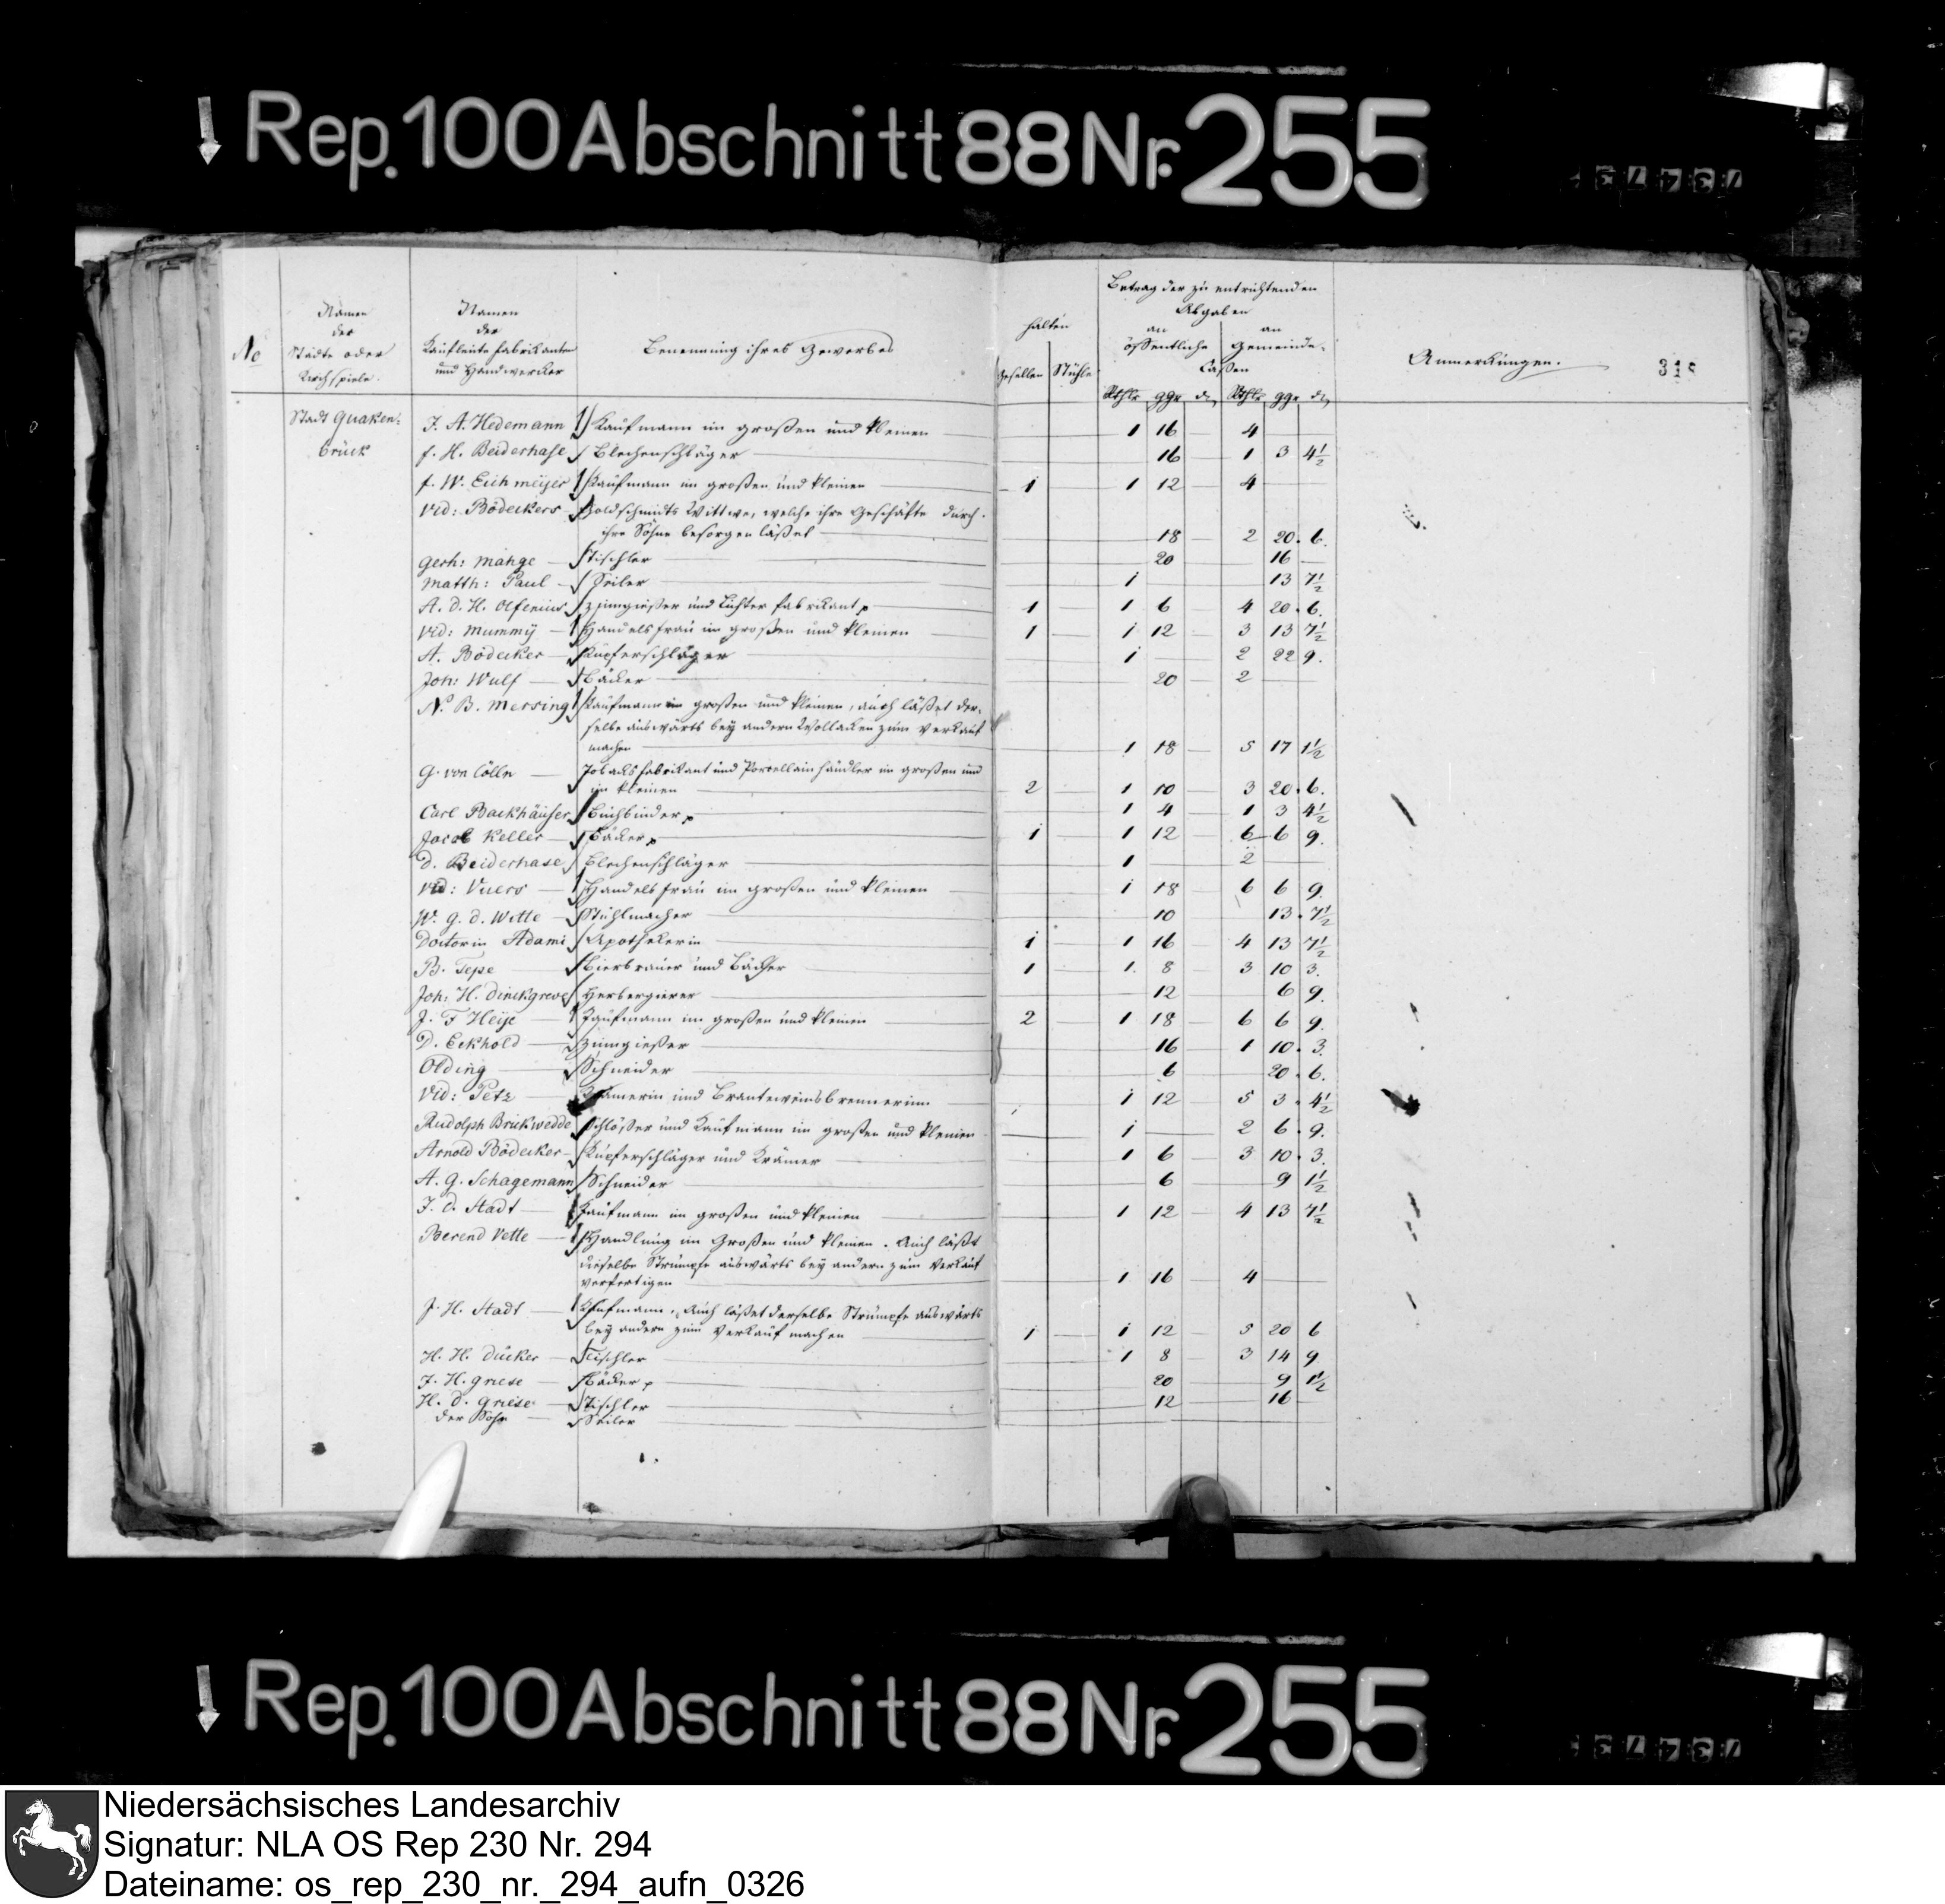 Rep. 100 Abschnitt 88 Nr. 255
No
Namen
der
Städte oder
Kirchspiele.
Namen
der
Kaufleute Fabrikanten
und Handwerker
Benennung ihres Gewerbes
halten
Gesellen Stühle
Betrag der zu entrichtenden
Abgaben
an öffentliche an Gemeinde-
Cassen
Rthlr ggr d Rthlr ggr d
Anmerkungen.
Stadt Quaken-
brück
J. A. Hedemann Kaufmann im großen und kleinen 1 16 4
f. H. Beiderhase Blechenschläger 16 1 3 4½
f. W. Eichmeÿer Kaufmann im großen und kleinen 1 1 12 4
Vid: Bödeckers Goldschmidts Wittwe, welche ihre Geschäfte durch
ihre Söhne besorgen läßet 18 2 20 6.
Gerh: Mange Tischler 20 16
Matth: Paul Seiler 1 13 7½
A. d. H. Olfenius Zinngießer und Lichter fabrikant 1 1 6 4 20 6.
Vid: Mummÿ Handelsfrau im großen und kleinen 1 1 12 3 13 7½
A. Bödecker Kupferschläger 1 2 22 9.
Joh: Wulf Bäcker 20 2
N. B. Mersing Kaufmann im großen und kleinen, auch läßet der-
selbe auswärts beÿ andern Wollacken zum Verkauf
machen 1 18 5 17 1½
G. von Cölln Tobacksfabrikant und Porcellainhändler im großen und
im kleinen 2 1 10 3 20 6.
Carl Backhäuser Buchbinder 1 4 1 3 4½
Jacob Keller Bäcker 1 1 12 6 6 9.
D. Beiderhase Blechenschläger 1 2
Vid: Vuers Handelsfrau im großen und kleinen 1 18 6 6 9.
W. G. d. Witte Stuhlmacher 10 13 7½
Doctorin Adami Apothekerin 1 1 16 4 13 7½
B. Tepe Bierbrauer und Bäcker 1 1. 8 3 10 3.
Joh: H. Dinckgreve Herbergierer 12 6 9.
J. F Heÿe Kaufmann im großen und kleinen 2 1 18 6 6 9.
D. Eckhold Zinngießer 16 1 10 3.
Olding Schneider 6 20 6.
Vid: Petz Krämerin und Branteweinsbrennerinn 1 12 5 3 4½
Rudolph Brickwedde Schlößer und Kaufmann im großen und kleinen 1 2 6 9.
Arnold Bödecker Kupferschläger und Krämer 1 6 3 10 3.
A. G. Schagemann Schneider 6 9 1½
J. d. Stadt Kaufmann im großen und kleinen 1 12 4 13 7½
Berend Vette Handlung im Großen und kleinen. Auch läßt
dieselbe Strümpfe auswärts beÿ andern zum Verkauf
verfertigen 1 16 4
J. H. Stadt Kaufmann, Auch läßet derselbe Strümpfe auswärts
beÿ andern zum Verkauf machen 1 1 12 5 20 6
H. H. Dücker Tischler 1 8 3 14 9
J. H. Griese Bäcker 20 9 1½
H. d. Griese Tischler 12 16
der Sohn Seiler
Rep. 100 Abschnitt 88 Nr. 255
Niedersächsisches Landesarchiv
Signatur: NLA OS Rep 230 Nr. 294
Dateiname: os_rep_230_nr._294_aufn_0326